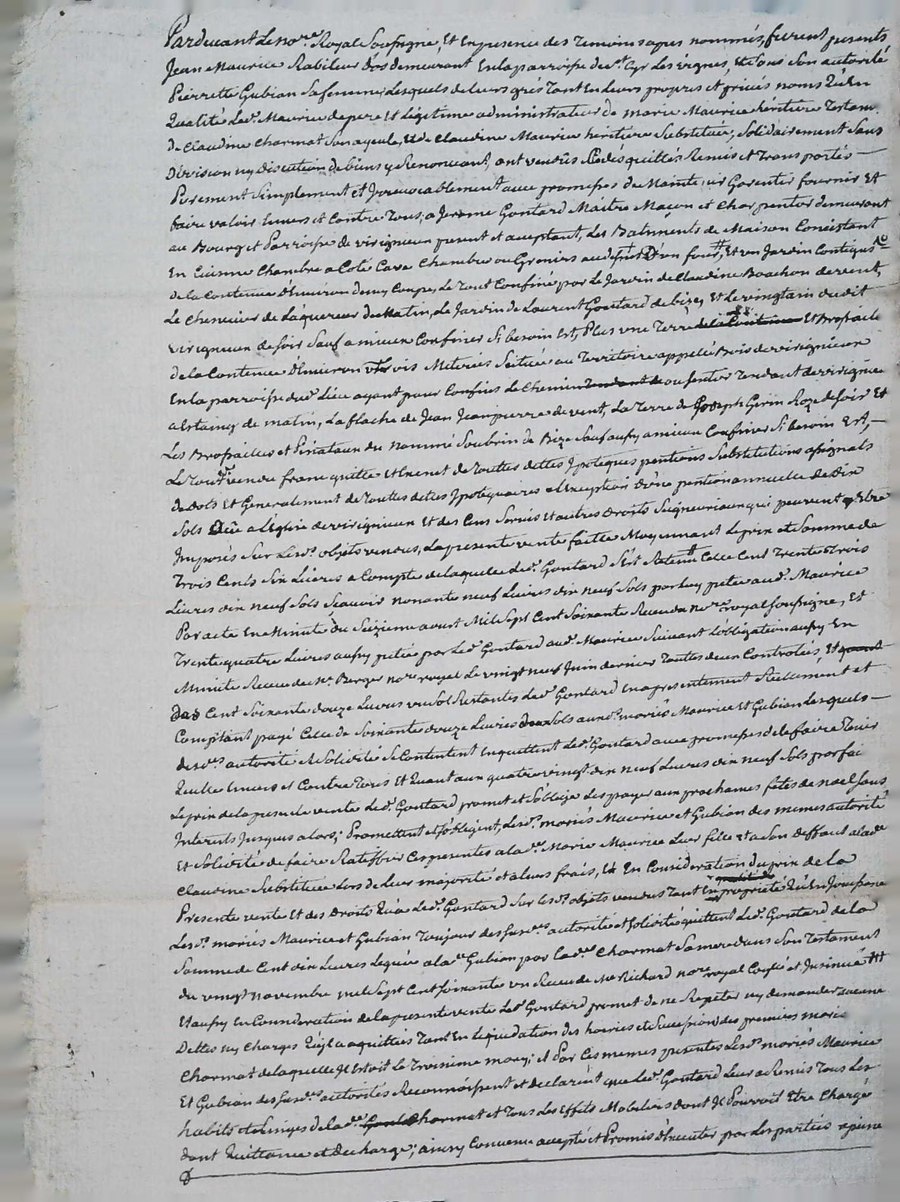 Pardevant Le nore Royal Soussigné, Et En presence des Temoins apres nommés, furent presents
Jean Maurice habileur dos demeurant En la parroisse de St Cyr Les vignes, et sous son autorité
Pierrette Gubian sa femme, Lesquels de leurs grés Tant En leurs propres et privés noms Qu'En
Qualité Led. Maurice de pere et Légitime administrateur de marie Maurice heritiere Testam.
de Claudine Charmat son ayeule, et de Claudine Maurice heritiere Substituée, Solidairement Sans
Division ny discution de biens y Renoncant, ont vendus Cédés quittés Remis et Transportés —
Purement Simplement et Irrevocablement avec promesses de Maintenir Garentir fournir Et
faire valoir Envers et Contre Tous, a Jerome Gontard Maitre Maçon et Charpentier demeurant
au Bourg et Parroisse de virigneux present et acceptant, Les Batiments de Maison Consistant
En Cuisine Chambre a Coté Cave Chambre ou Greniers au dessus D'un four, Et un Jardin Contigus
de la Contenue d'Environ demy Coupe, Le Tout Confiné par Le Jardin de Claudine Boachon de vent,
Le Chenevier de Laquereur de Matin, Le Jardin de Laurent Goutard de bize, Et Le vingtain dudit
virigneux de soir Sauf a mieux Confiner Si besoin Est, Plus une Terre de la Contenue Et Brossaile
de la Contenue d'Environ Trois Meterées Scituée au Territoire appellé Bois de virigneux
En la parroisse dud. Lieu ayant pour Confins Le Chemin Tendant de ou sentier Tendant de virigneu
a Estaing de matin, La flache de Jean Jeanpierre de vent, La Terre de Joseph Gerin Roze de soir Et
Les Brossailes et Pinataux du nommé Soubrin de Bize Sauf aussy a mieux Confiner Si besoin Est, —
Le Tout vendu franc quitte et Exempt de Touttes dettes Ipoteques pentions Substitutions assignals
de dots Et Generalement de Touttes dettes Ipotequaires a L'exception D'une pention annuelle de Dix
Sols Düe a L'Eglise de virigneux Et des Cens Servis Et autres Droits Seigneuriaux qui peuvent Etre
Imposés Sur Lesd. objets vendus, La presente vente faitte Moyennant Le prix et Somme de
Trois Cents Six Livres a Compte de Laquelle Led. Gontard S'est Retenu Celle Cent Trente Trois
Livres dix neuf Sols Scavoir nonante neuf Livres dix neuf Sols par luy prétée aud. Maurice
Par acte En Minute du Seizieme aoust Mil Sept Cent Soixante Receu du nore royal soussigné, Et
Trente quatre Livres aussy pretée par Led. Gontard aud. Maurice Suivant L'obligation aussy En
Minute Receue de Me Berger nore royal Le vingt neuf Juin dernier Touttes deux Controlées, Et quant
Das Cent Soixante douze Livres un Sol Restantes Led. Gontard En a presentement Réelement et
Comptant payé Celle de Soixante douze Livres deux Sols auxd. mariés Maurice Et Gubian Lesquels —
desd. autorité et Solidité Se Contentent En quittent Led. Gontard avec promesses de le faire Tenir
Quitte Envers et Contre Tous Et Quant aux quatre vingt dix neuf Livres dix neuf Sols parfai
Le prix de la presente vente Led. Gontard promet et S'oblige de les payer aux prochaines fêtes de noel Sans
Interets Jusques alors; Promettent et s'obligent, Lesd. mariés Maurice et Gubian des mêmes autorité
Et Solidité de faire Ratiffier Ces presentes a lad. Marie Maurice Leur fille Et a Son deffaut a lad.
Claudine Substituée Lors de Leur majorité et a leurs frais, Et En Consideration du prix de la
Presente vente Et des Droits Qu'a Led. Gontard Sur Lesd. objets vendus Tant En proprieté Qu'En Jouissance
Lesd. mariés Maurice et Gubian Toujours desd. autorité et Solidité quittent Led. Gontard de la
Somme de Cent dix Livres Leguée a lad. Gubian par lad. Charmat Sa mere dans Son Testament
du vingt novembre mil Sept Cent Soixante un Receu de Me Richard nore royal Coppié et Insinué
Et aussy En Consideration de la presente vente Led. Gontard promet de ne Repeter ny demander aucune
Dettes ny Charges Qu'il a aquittées Tant En Liquidation des hoiries et Succession des premiers maris
Charmat de laquelle Il Estoit Le Troisieme mary; et Par Ces memes presentes Lesd. mariés Maurice
Et Gubian desd. autorités Reconnoissent et declarent que Led. Gontard Leur a Remis Tous Les
habits et Linges de lad. Charmat et Tous Les Effets Mobiliers dont Il Pourroit Etre Chargé
dont Quittance et decharge; ainsy Convenu accepté et Promis d'Executer par Les parties a peine